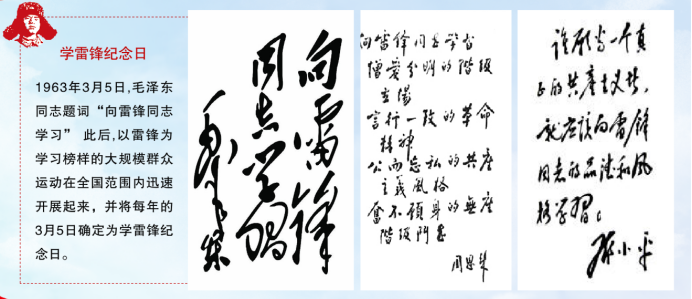 学雷锋纪念日
1963年3月5日,毛泽东
同志题词“向雷锋同志
学习” 此后,以雷锋为
学习榜样的大规模群众
运动在全国范围内迅速
开展起来，并将每年的
3月5日确定为学雷锋纪
念日。
向雷锋
同志学习
毛泽东
向雷锋同志学习
憎爱分明的阶级
立場
言行一致的革命
精神
公而忘私的共產
主義風格
奮不顧身的無產
階級鬥志
周恩来
谁愿当一个真
正的共產主义者，
就应该向雷锋
同志的品德和风
格学習。
邓小平